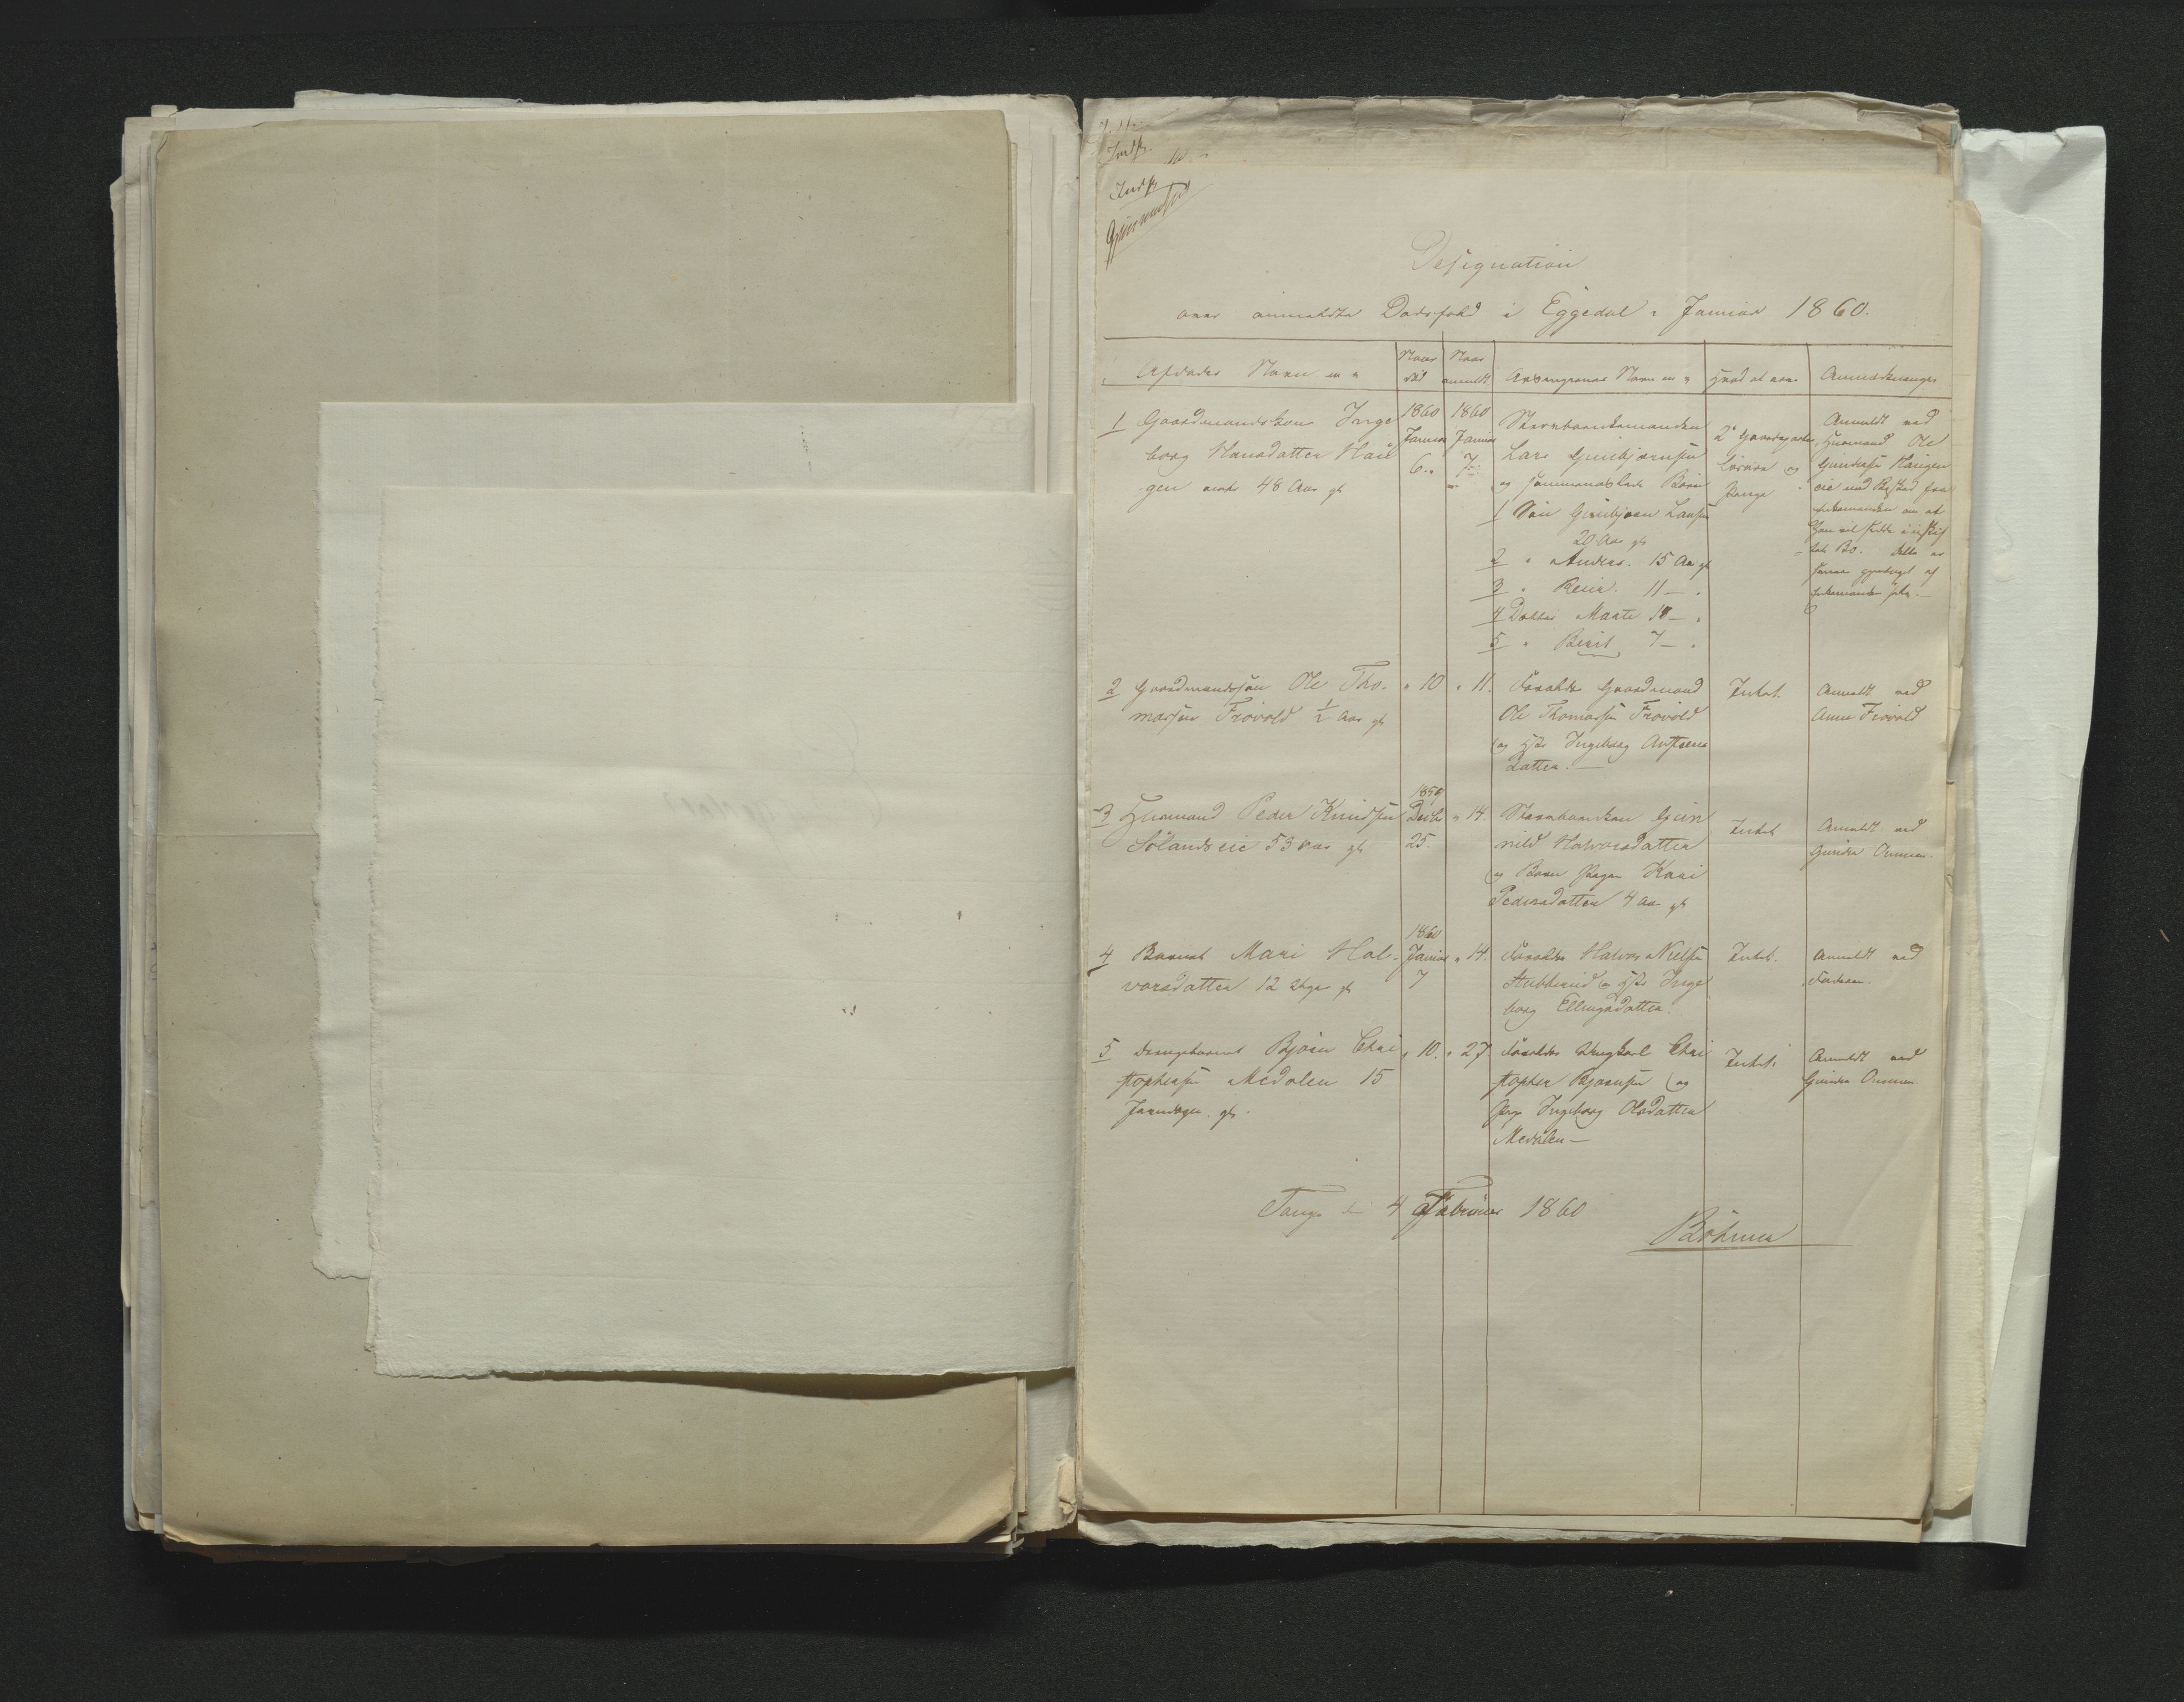 Indf.
Indf.
Gjennemseet
Designation
over anmeldte Dødsfald i Eggedal i Januar 1860.
Afdødes Navn m. v.
Naar død
Naar anmeldt
Arvingernes Navn m. v.
Hvad at arve
Anmærkninger
1 Gaardmandskone Inge
borg Hansdatter Hau
gen 48 Aar gl
1860
Januar
6.
1860
Januar
7.
Stervboenkemanden
Lars Gunbjørnsen
og sammenavlede Børn
1 Søn Gunbjørn Larsen
20 Aar gl
2 " Andres. 15 Aar gl
3 " Reier. 11 — "
4 Datter Marte 18 — "
5 " Berit 7 — "
2 Gaardparter
Løsøre og
Penge
Anmeldt ved
Huusmand Ole
Gundersen Haugen
eie med Besked fra
Enkemanden om at
han vil sidde i uskif
tet Bo. Dette er
senere gjentaget af
Enkemanden selv. —
2 Gaardmandssøn Ole Tho-
massen Frøvold ½ Aar gl
" 10
" 11.
Forældre Gaardmand
Ole Thomassen Frøvold
og Hst. Ingeborg Austens
Datter. —
Intet.
Anmeldt ved
Anne Frøvold
3 Huusmand Peder Knudsen
Sølandseie 53 Aar gl
1859
Decbr
25.
" 14.
Stervboenken Gun
nild Halvorsdatter
og Barn Pigen Kari
Pedersdatter 4 Aar gl
Intet
Anmeldt ved
Gunder Onsmen.
4 Barnet Mari Hal-
vorsdatter 12 Uger gl
1860
Januar
7
" 14.
Forældre Halvor Nielsen
Stubberud og Hst. Inge
borg Ellingsdatter.
Intet.
Anmeldt ved
Faderen.
5 Drengebarnet Bjørn Chri
stophersen Medalen 15
" 10.
" 27.
Forældre Ungkarl Chri
stopher Bjørnsen og
Pige Ingeborg Olsdatter
Medalen —
Intet.
Anmeldt ved
Gunder Onsmen.
4 Februar 1860
Bøhmer